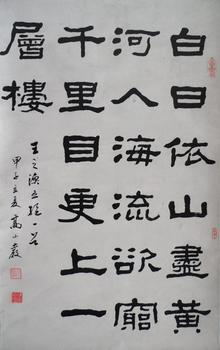 白日依山盡黃
河入海流欲窮
千里目更上一
層樓
王之渙五絕一首
甲子立夏高小巖